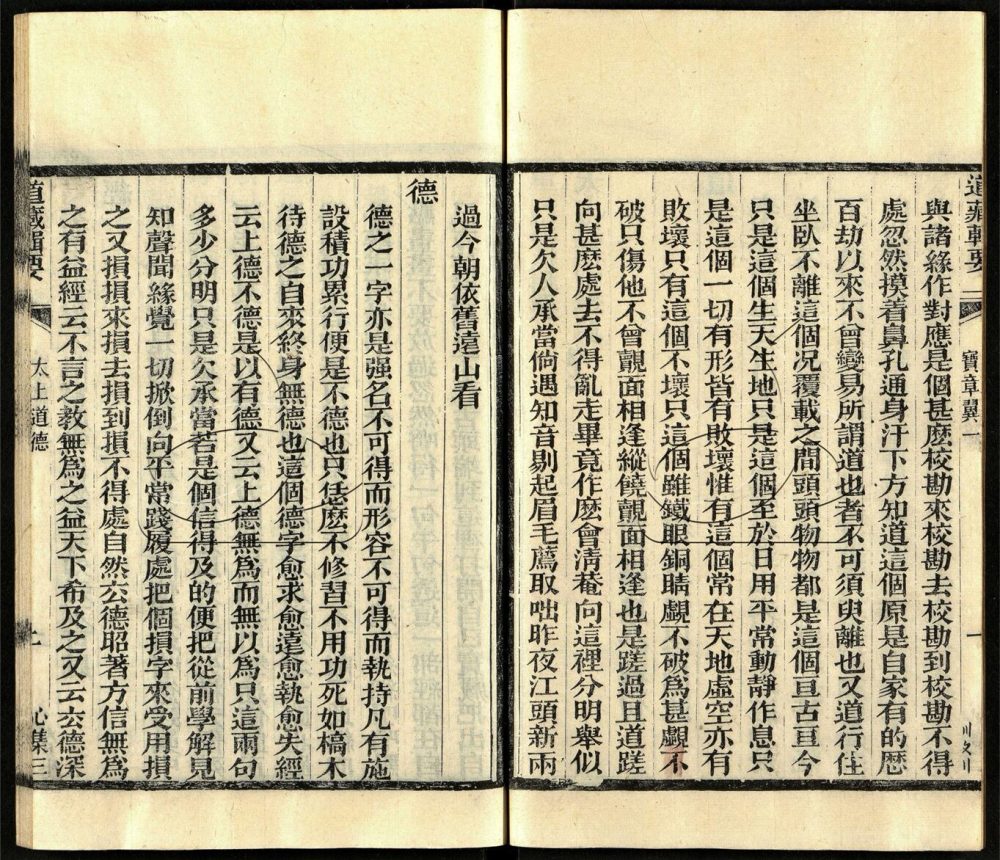 道藏輯要
寶章翼一
一
與諸緣作對應是個甚麽校勘來校勘去校勘到校勘不得
處忽然摸着鼻孔通身汗下方知道這個原是自家有的歷
百劫以來不曾變易所謂道也者不可須臾離也又道行住
坐臥不離這個况覆載之間頭頭物物都是這個亘古亘今
只是這個生天生地只是這個至於日用平常動靜作息只
是這個一切有形皆有敗壞惟有這個常在天地虛空亦有
敗壞只有這個不壞只這個雖鐵眼銅睛覷不破為甚覷不
破只傷他不曾覿面相逢縱饒覿面相逢也是蹉過且道蹉
向甚麽處去不得亂走畢竟作麽會淸菴向這裡分明舉似
只是欠人承當倘遇知音剔起眉毛薦取咄昨夜江頭新雨
過今朝依舊遠山看
德
德之一字亦是强名不可得而形容不可得而執持凡有施
設積功累行便是不德也只恁麽不修習不用功死如槁木
待德之自來終身無德也這個德字愈求愈遠愈執愈失經
云上德不德是以有德又云上德無爲而無以爲只這兩句
多少分明只是欠承當若是個信得及的便把從前學解見
知聲聞緣覺一切掀倒向平常踐履處把個損字來受用損
之又損損來損去損到損不得處自然玄德昭著方信無爲
之有益經云不言之教無爲之益天下希及之又云玄德深
道藏輯要
太上道德
上
心集三